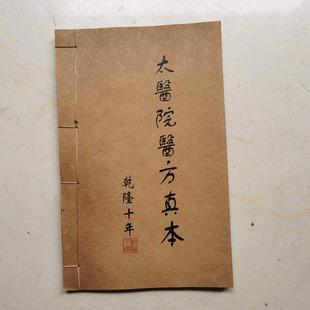 太醫院醫方真本
乾隆十年